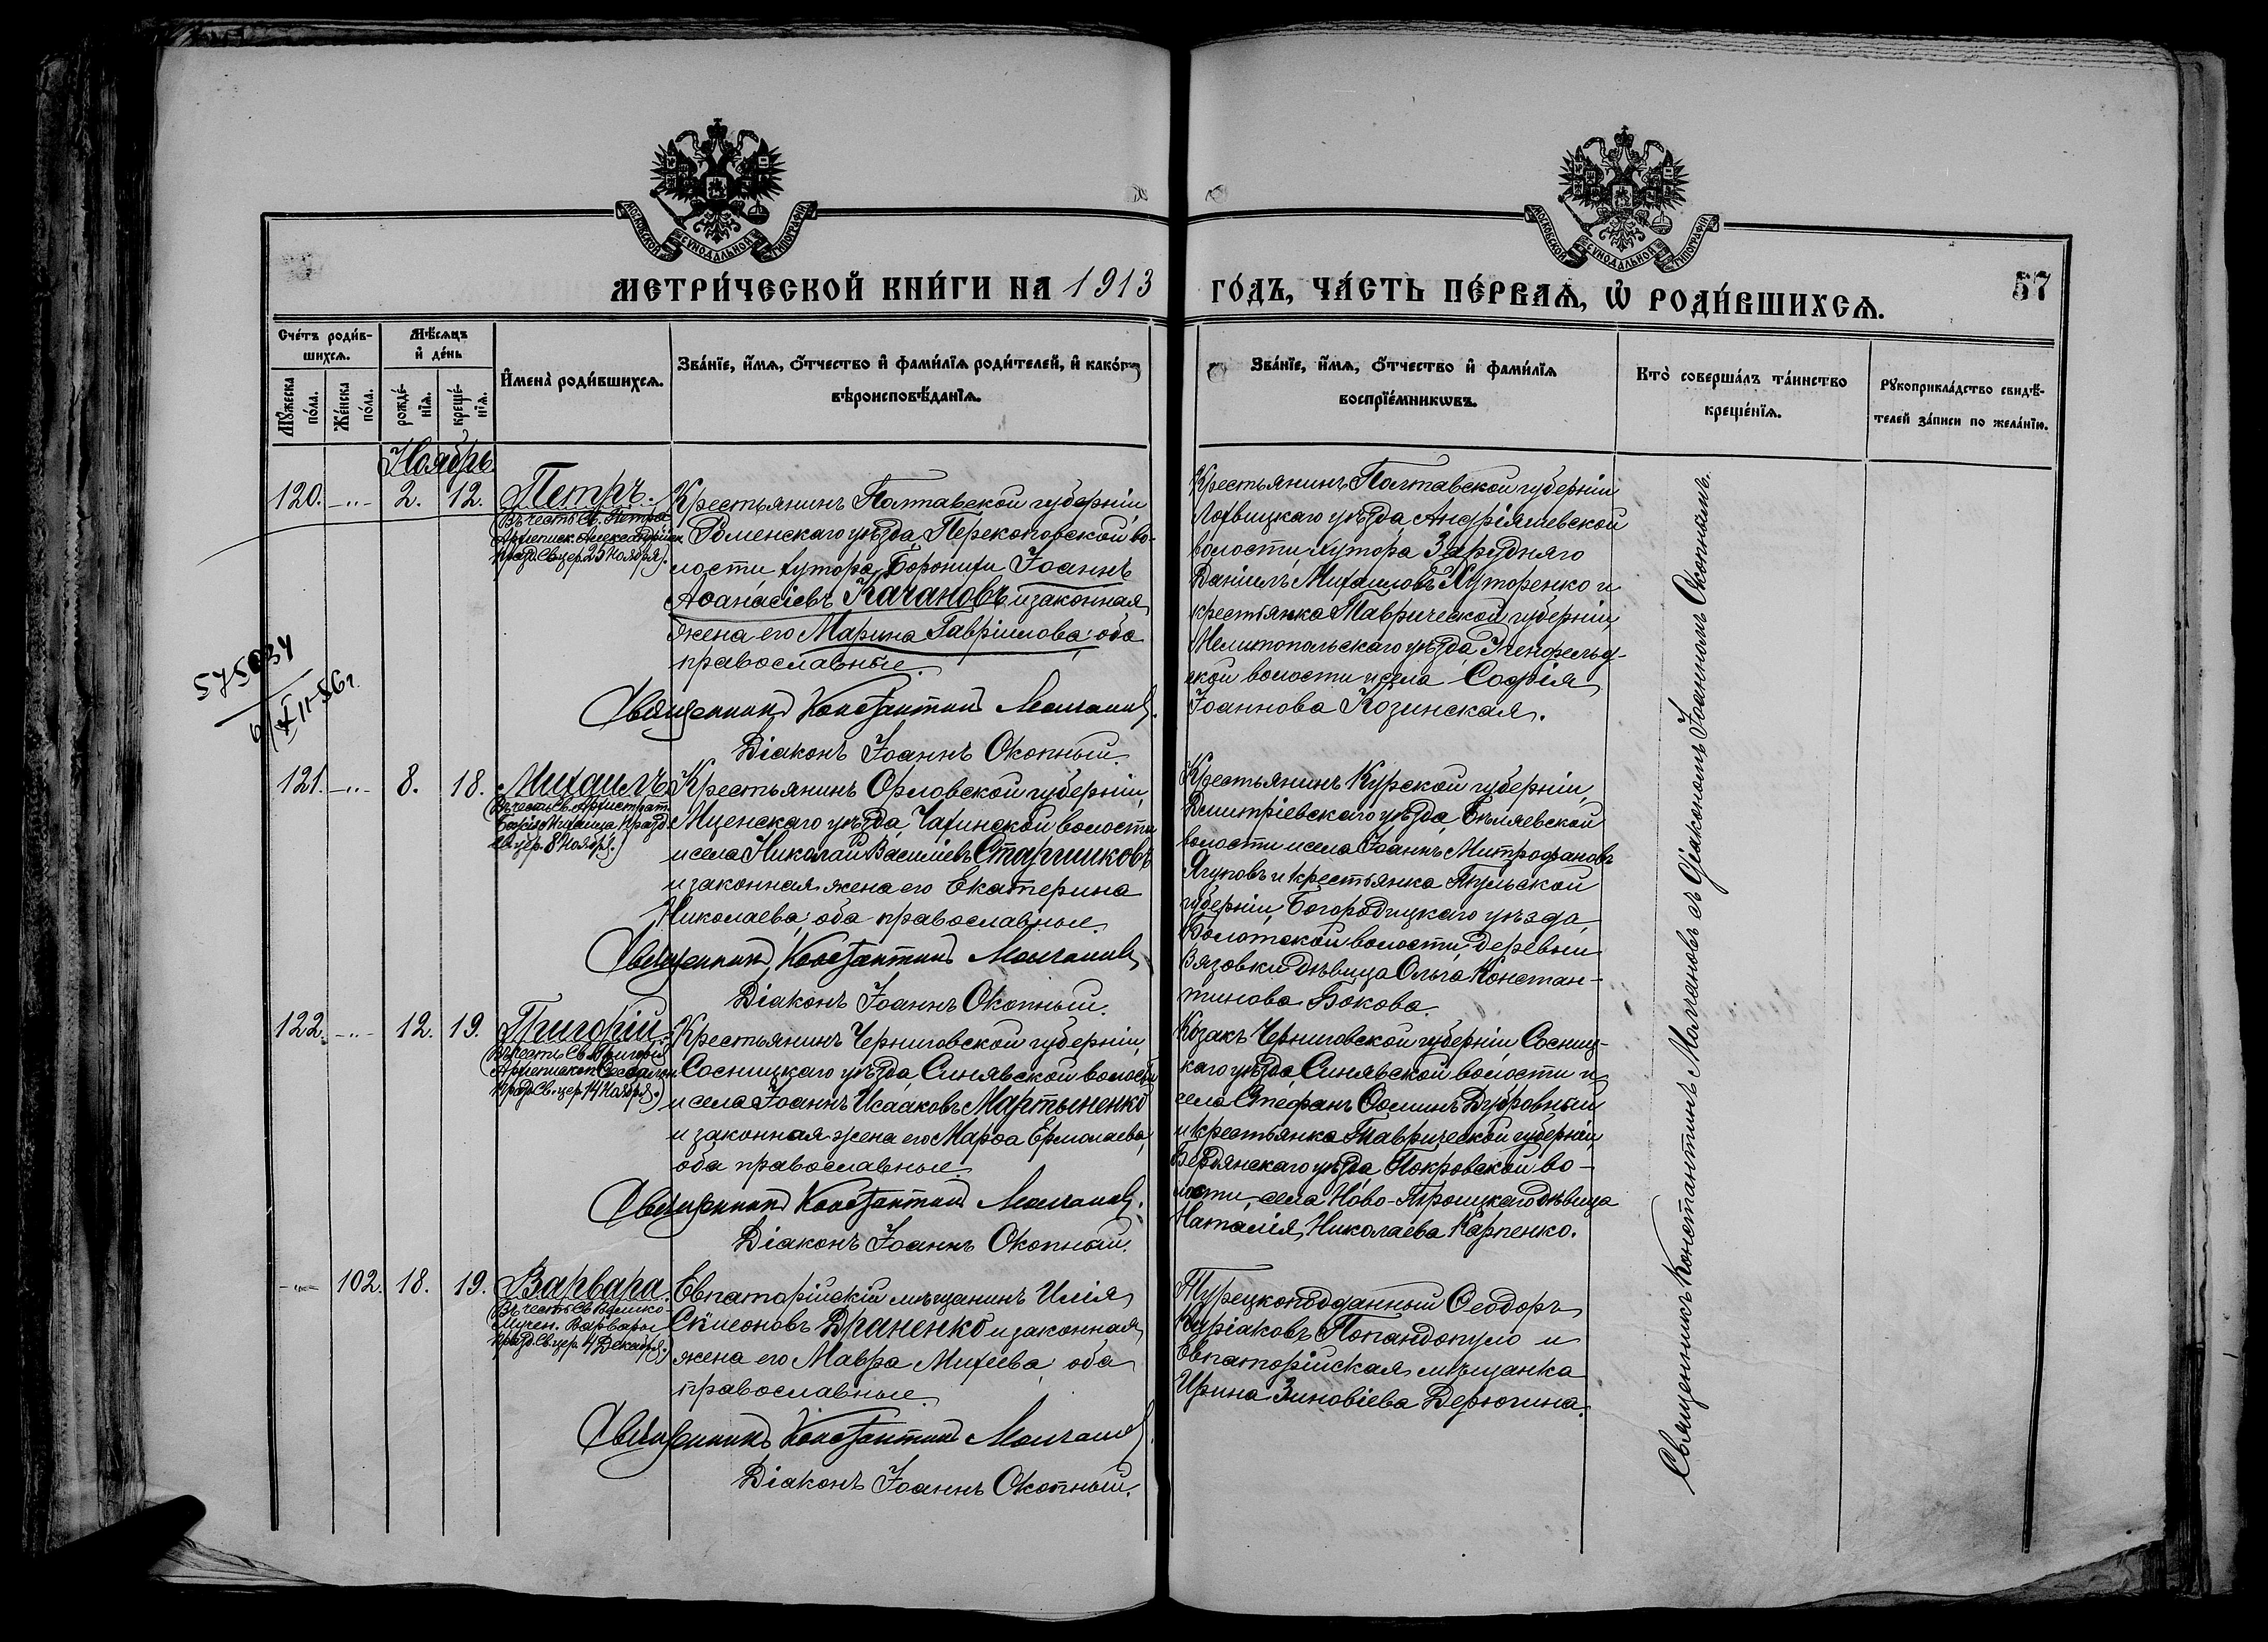 МОСКОВСКОЙ СѴНОДАЛЬНОЙ ТИПОГРАФІИ
МОСКОВСКОЙ СѴНОДАЛЬНОЙ ТИПОГРАФІИ
МЕТРИ́ЧЕСКОЙ КНИ́ГИ НА 1913 ГО́ДЪ, ЧА́СТЬ ПЕ́РВАѦ, Ѡ҆ РОДИ́ВШИХСѦ.
57
Сче́тъ роди́в-
шихсѧ.
Мѣ́сѧцъ
и҆ де́нь
Мꙋ́жеска
по́ла.
Же́нска
по́ла.
рожде́-
нїѧ.
креще́-
нїѧ.
И҆мена̀ роди́вшихсѧ.
Зва́нїе, и҆́мѧ, ѻ҆́тчество и҆ фами́лїѧ роди́телей, и҆ како́гѡ
вѣроисповѣ́данїѧ.
Зва́нїе, и҆́мѧ, ѻ҆́тчество и҆ фами́лїѧ
воспрїе́мникѡвъ.
Кто̀ соверша́лъ та́инство
креще́нїѧ.
Рꙋкоприкла́дство свидѣ́-
телей за́писи по жела́нїю.
Ноябрь.
120. -"- 2. 12. Петръ.
Въ честь Св. Петра
Архіеписк. Александрійск.
празд. Св. цер. 25 Ноября).
Крестьянинъ Полтавской губерніи,
Роменскаго уѣзда, Перекоповской во-
лости, хутора Боронихи Іоаннъ
Аѳанасіевъ Качановъ и законная
жена его Марина Гавріилова; оба
православные.
Священникъ Константинъ Молчановъ.
Діаконъ Іоаннъ Окопный.
Крестьянинъ Полтавской губерніи,
Лохвицкаго уѣзда, Андріяшевской
волости, хутора Зарудняго
Даніилъ Михаиловъ Хуторенко и
крестьянка Таврической губерніи,
Мелитопольскаго уѣзда,
ской волости и села София
Іоаннова Козинская.
575034
6/XII-56г.
121. -"- 8. 18. Михаилъ
Въ честь Св. Архистрат.
Божія Михаила празд.
Св. цер. 8 Ноября.)
Крестьянинъ Орловской губерніи,
Мценскаго уѣзда, Чахинской волости
и села Николай Василіевъ Старчиковъ
и законная жена его Екатерина
Николаева; оба православные.
Священникъ Константинъ Молчановъ
Діаконъ Іоаннъ Окопный.
Крестьянинъ Курской губерніи,
Дмитріевскаго уѣзда, Бѣляевской
волости и села Іоаннъ Митрофановъ
Ягуповъ и крестьянка Тульской
губерніи, Богородицкаго уѣзда,
Болотской волости, деревни
Вязовки дѣвица Ольга Констан-
тинова Бокова.
122. -"- 12. 19. Григорій.
Въ честь Св. Григорія
Архіепископ.
празд. Св. цер. 14 Ноября.)
Крестьянинъ Черниговской губерніи,
Сосницкаго уѣзда, Синявской волости
и села Іоаннъ Исааковъ Мартыненко
и законная жена его Марѳа Ермолаева,
оба православные.
Священникъ Константинъ Молчановъ.
Діаконъ Іоаннъ Окопный.
Козакъ Черниговской губерніи, Сосниц-
каго уѣзда, Синявской волости и
села Стефанъ Ѳоминъ Дубровный
и крестьянка Таврической губерніи,
Бердянскаго уѣзда, Покровской во-
лости, села Ново-Троицкаго дѣвица
Наталія Николаева Карпенко.
-"- 102. 18. 19. Варвара.
Въ честь Св. Велико-
мучен. Варвары
празд. Св. цер. 4 Декабря.)
Евпаторійскій мѣщанинъ Илія
Сѵмеоновъ Драненко и законная
жена его Мавра Михеева; оба
православные.
Священникъ Константинъ Молчановъ.
Діаконъ Іоаннъ Окопный.
Турецкоподданный Ѳеодоръ
Киріаковъ Попандопуло и
Евпаторійская мѣщанка
Ирина Зиновіева Дерюгина.
Священникъ Константинъ Молчановъ съ діакономъ Іоанномъ Окопнымъ.